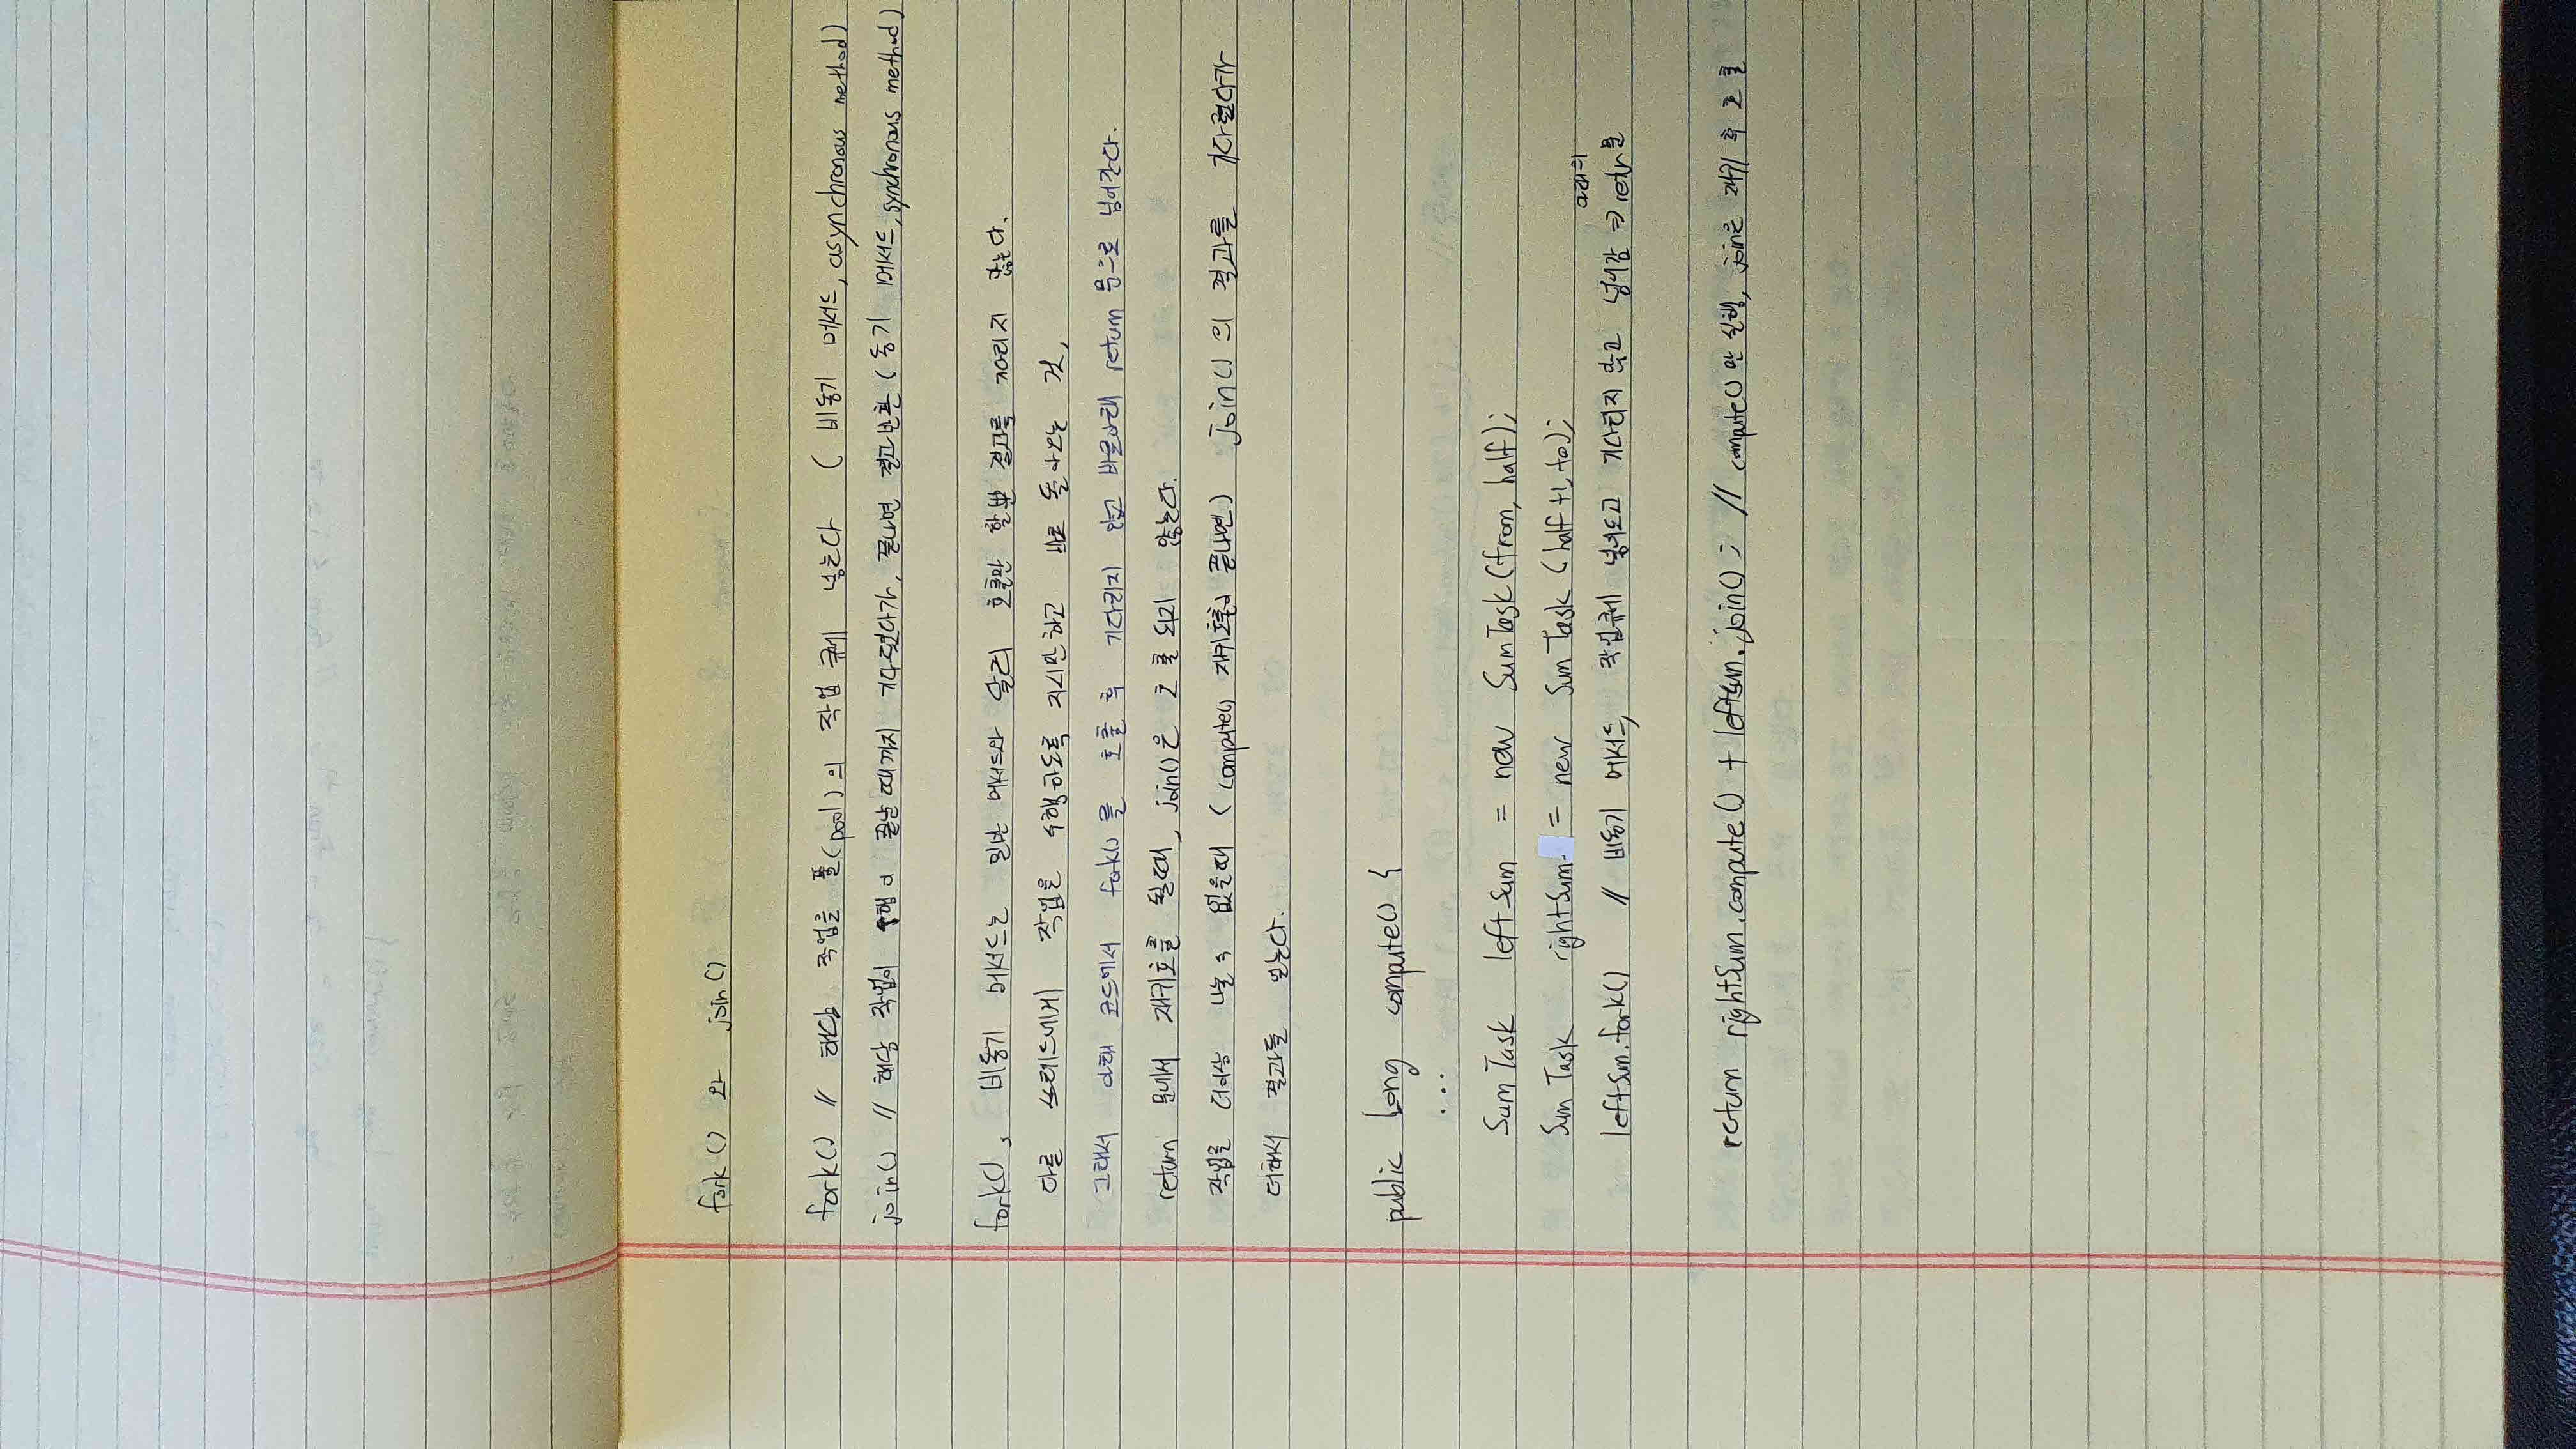 fork() 와 join()
fork() // 해당 작업을 풀(pool)의 작업 큐에 넣는다 ( 비동기 메서드, asynchronous method)
join() // 해당 작업이 수행이 끝날 때까지 기다렸다가, 끝나면 결과반환 (동기 메서드, synchronous method)
fork(), 비동기 메서드는 일반 메서드와 달리 호출만 할뿐 결과를 기다리지 않는다.
다른 쓰레드에게 작업을 수행하도록 지시만하고 바로 돌아오는 것,
그래서 아래 코드에서 fork()를 호출 후 기다리지 않고 바로아래 return 문으로 넘어간다.
return 문에서 재귀호출 될때, join()은 호출되지 않는다.
작업을 더이상 나눌 수 없을때 (compute() 재귀호출이 끝나면) join()의 결과를 기다렸다가
더해서 결과를 얻는다.
public Long compute() {
...
SumTask leftSum = new SumTask(from, half);
SumTask rightSum = new SumTask (half +1, to);
아래의
leftSum.fork() // 비동기 메서드, 작업큐에 넣어두고 기다리지 않고 넘어감 => retrn문
return rightSum.compute() + leftsum.join(); // compute()만 실행, join은 재귀 후 호출